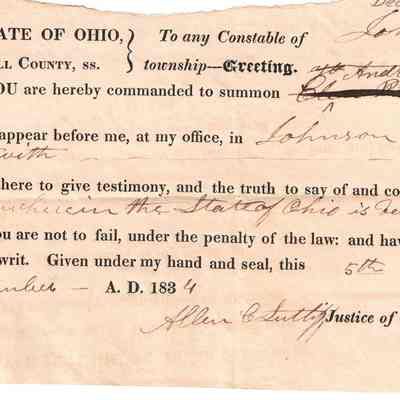 De
ATE OF OHIO, } To any Constable of Jo
LL COUNTY, ss. } township—Greeting. Andr
OU are hereby commanded to summon
appear before me, at my office, in Johnson
with
here to give testimony, and the truth to say of and co
wherein the State of Ohio is
ou are not to fail, under the penalty of the law: and hav
writ. Given under my hand and seal, this 5th
mber — A. D. 1834
Allen C Justice of